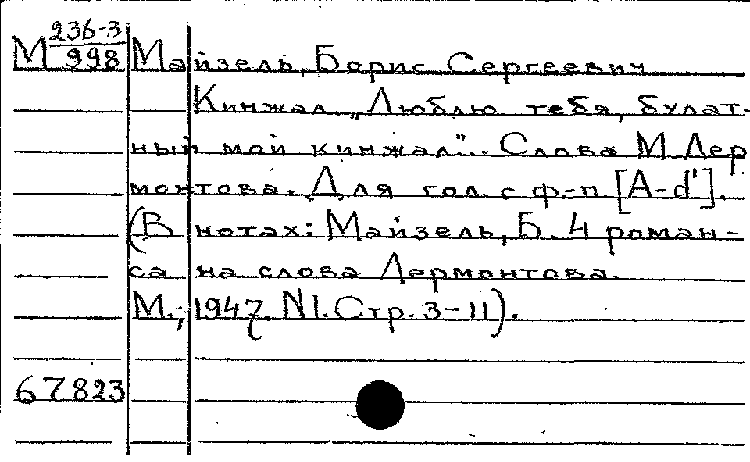 М 236-3/998 Майзель, Борис Сергеевич
Кинжал. „Люблю тебя, булат-
ный мой кинжал"... Слова М. Лер
монтова. Для гол. с ф.-п [A-d'].
(В нотах: Майзель, Б. 4 роман-
са на слова Лермонтова.
М., 1947. N1. Стр. 3-11).
67823